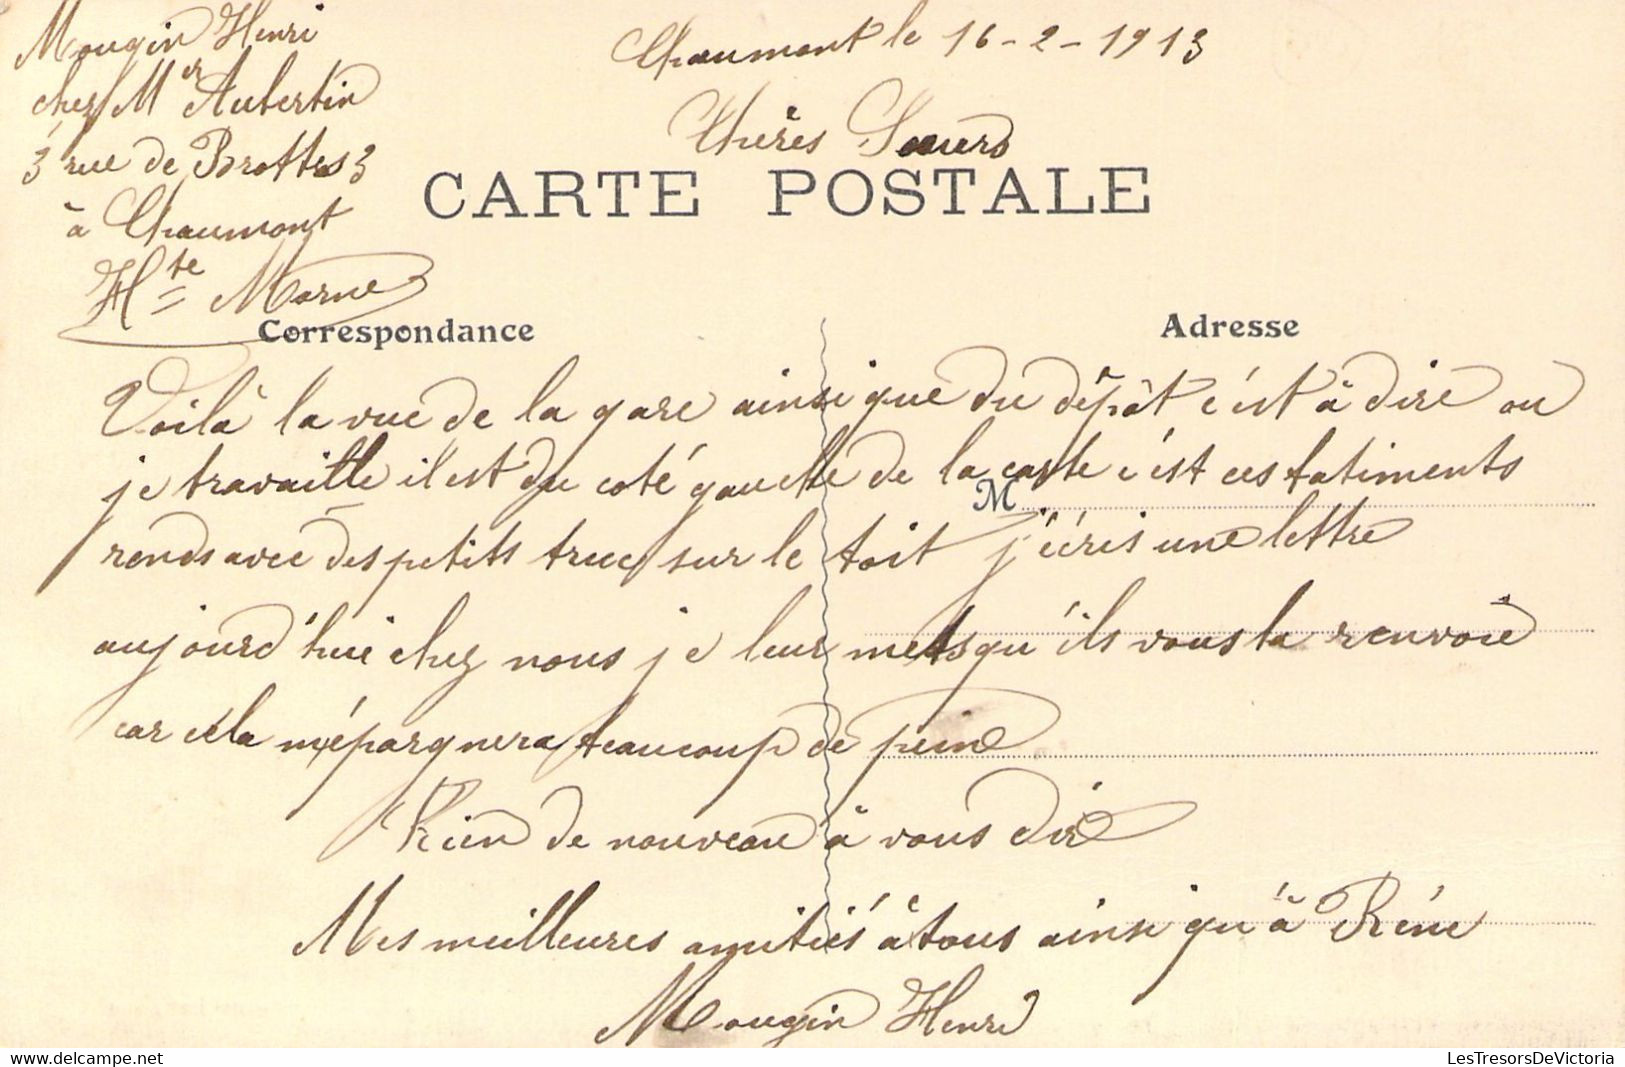 Mougin Henri
chez Mer Aubertin
3 rue de Brottes 3
à Chaumont
Hte Marne
Chaumont le 16-2-1913
Chères Sœurs
CARTE POSTALE
Correspondance
Adresse
Voilà la vue de la gare ainsi que du dépôt c'est à dire ou
je travaille il est du coté gauche de la carte c'est ces batiments
M
ronds avec des petits truc sur le toit j'écris une lettre
aujourd'hui chez nous je leur mets qu'ils vous la renvoie
car cela m'épargnera beaucoup de peine
Rien de nouveau à vous dire
Mes meilleures amitiés à tous ainsi qu'à Réné
Mougin Henri
LesTresorsDeVictoria